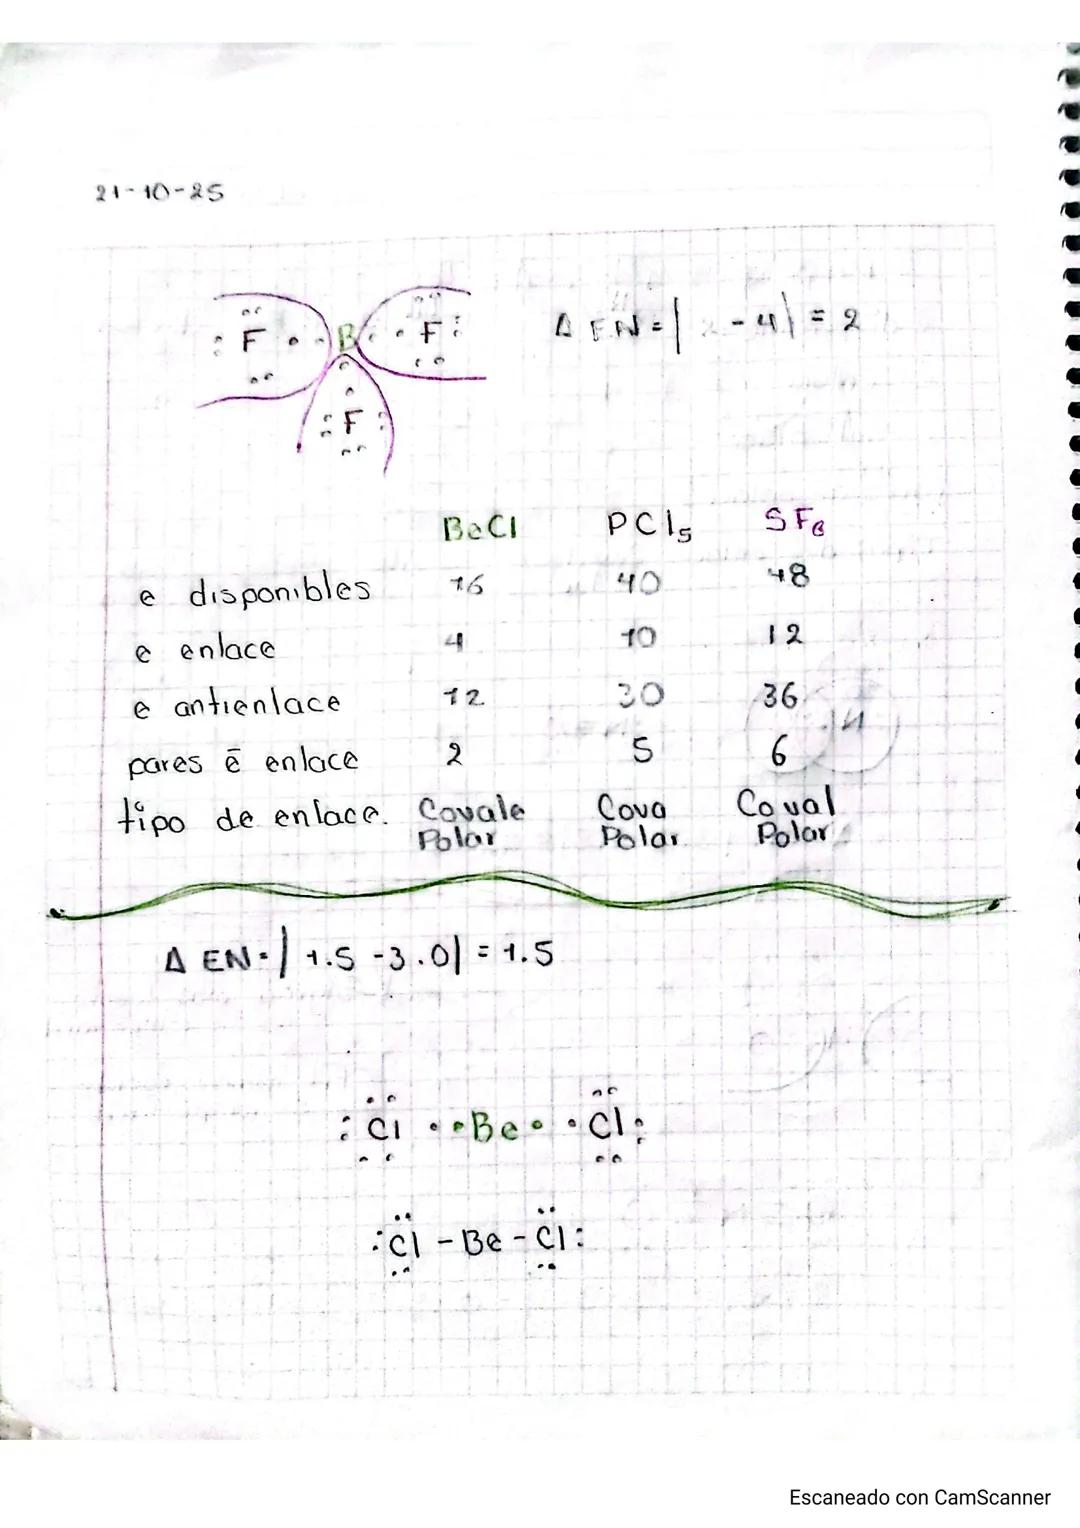 21-10-25
:F· ·B· ·F:
:F:
Δ EN=| - 4| = 2
BeCl PCl₅ SF₆
e disponibles 16 40 48
e enlace 4 10 12
e antienlace 12 30 36
pares ē enlace 2 5 6
tipo de enlace. Covale Cova Coval
Polar Polar Polar
Δ EN=| 1.5 -3.0| = 1.5
:Cl ··Be· ·Cl:
:Cl - Be - Cl:
Escaneado con CamScanner